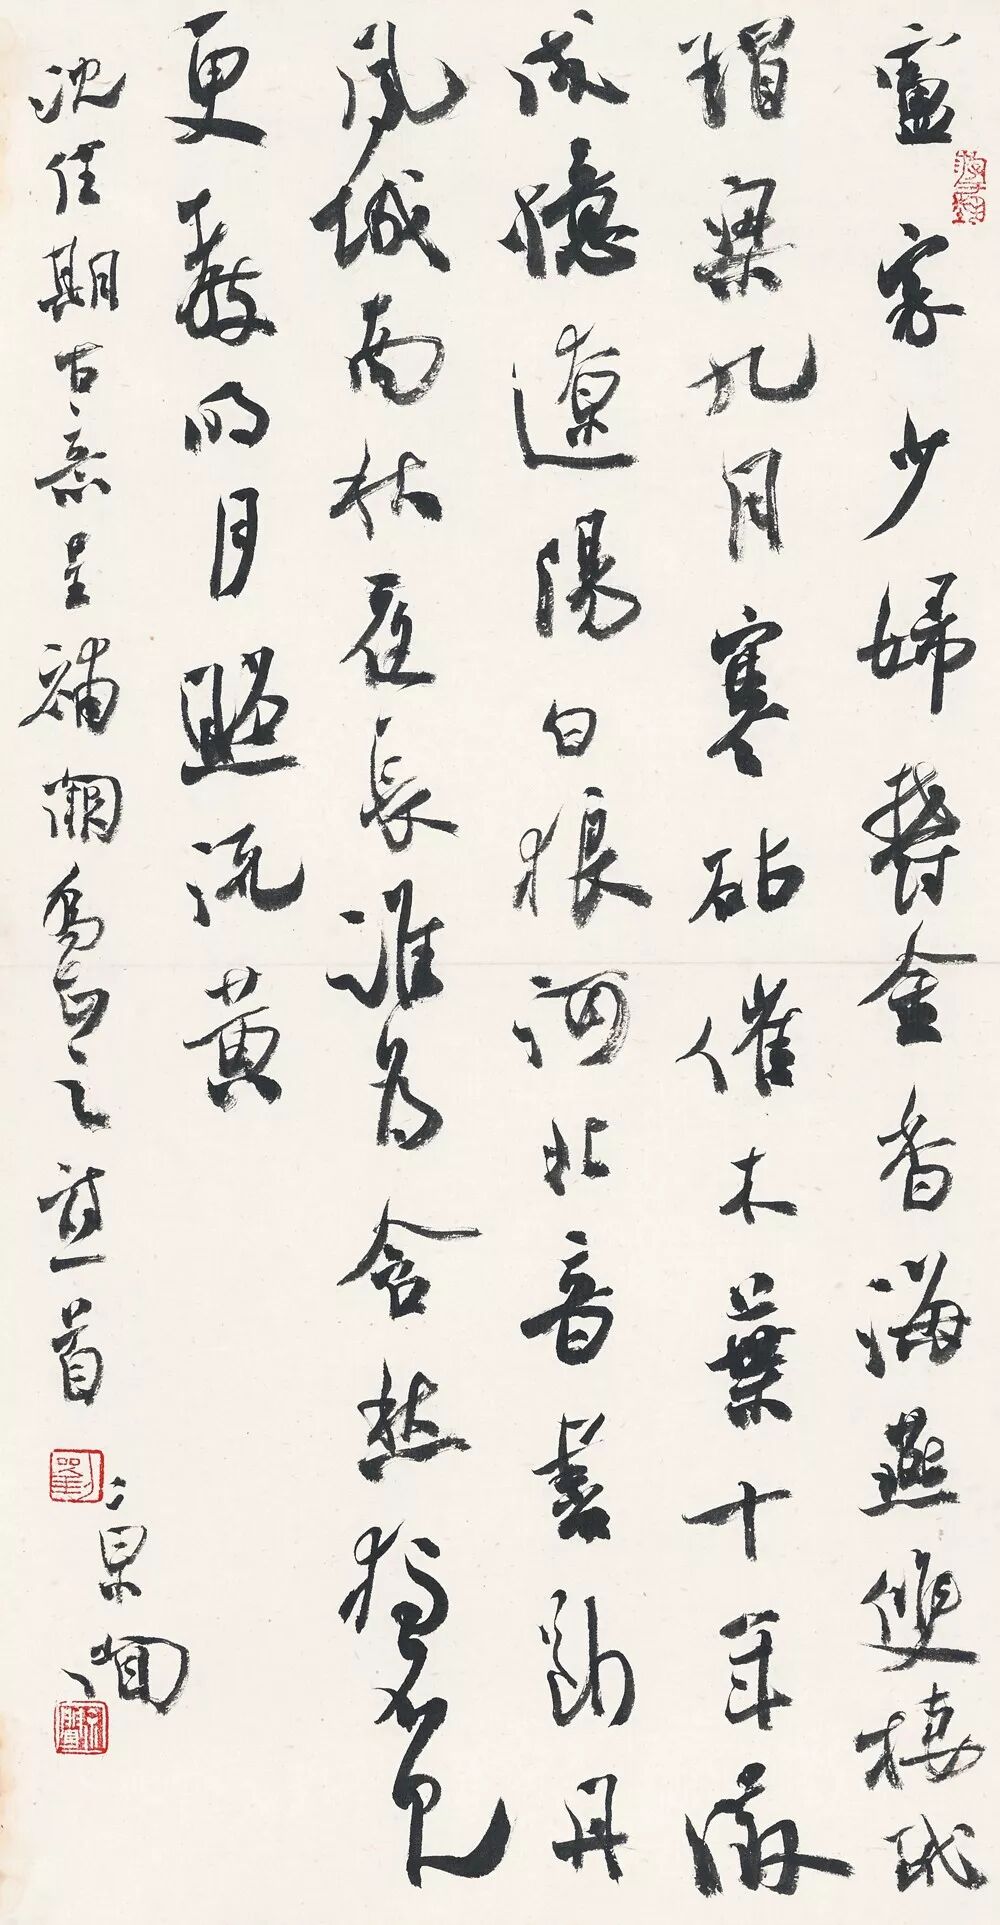 盧家少婦鬱金香海燕雙棲玳
瑁梁九月寒砧催木葉十年徵
戍憶遼陽白狼河北音書斷丹
鳳城南秋夜長誰為含愁獨不見
更教明月照流黃
沈佺期古意呈補闕喬知之 首
劉